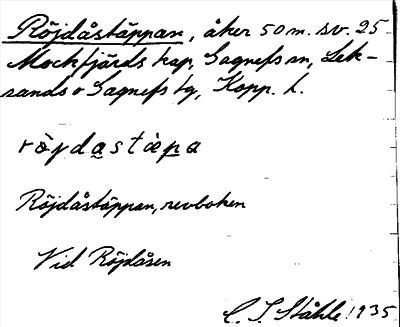 Röjdåstäppan, åker 50 m. sv. 25
Mockfjärds kap, Gagnefs sn, Lek-
sands o Gagnefs tg, Kopp. l.
röjdastäpa
Röjdåstäppan, revboken
Vid Röjdåsen
C. I. Ståhle 1935